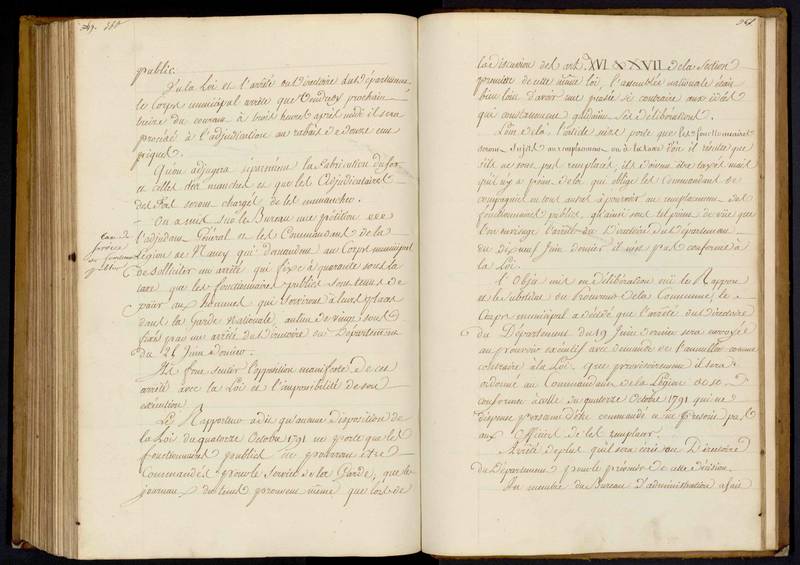 public.
Vu la Loi et l'arrêté du Directoire du Département
le Corps municipal arrête que Vendredy prochain
treize du courant à trois heures après midi il sera
procédé à l'adjudication au rabais de douze cens
piques.
Qu'on adjugera séparément la fabrication du fer
et celles des manches et que les Adjudicataires
des Fers seront chargés de les emmancher.
On a mis sur le Bureau une pétition
l'adjudant Général et les Commandans de la
Légion de Nancy qui demandent au Corps municipal
de solliciter un arrêté qui fixe à quarante sous la
taxe que les fonctionnaires publics sont tenus de
paier aux hommes qui serviront à leurs places
dans la Garde Nationale, au lieu de vingt sous
fixés par un arrêté du Directoire du Département
du 21 Juin dernier.
Ils font sentir l'opposition manifeste de cet
arrêté avec la Loi et l'impossibilité de son
exécution.
Le Rapporteur a dit qu'aucune disposition de
la Loi du quatorze Octobre 1791 ne porte que les
fonctionnaires publics ne pourront être
Commandés pour le Service de la Garde; que le
journau des tems prouvent même que lors de
taxe de
service
des fonctionnaires
publics
261
la discussion des art. XVI & XVII de la Section
première de cette même loi, l'assemblée nationale était
bien loin d'avoir une pensée si contraire aux idées
qui constamment guidaient ses délibérations.
Loin de là l'article 16 ne porte que les fonctionnaires
seront sujets au remplacement ou à la taxe d'où il résulte que
s'ils ne sont pas remplacés, ils doivent être taxés mais
qu'il n'y a point de loi qui oblige les Commandans de
compagnies ou tout autre à pourvoir au remplacement des
fonctionnaires publics, qu'ainsi sous tel point de vue que
l'on envisage l'arrêté du Directoire du Département
du dix neuf Juin dernier il n'est pas conforme à
la Loi.
l'Objet mis en délibération ouï le Rapport
et le substitut du Procureur de la Commune, le
Corps municipal a décidé que l'arrêté du directoire
du Département du 19 Juin dernier sera envoyé
au pouvoir exécutif avec demande de l'annuller comme
contraire à la Loi. que provisoirement il sera
ordonné au Commandant de la Légion de se
conformer à celle du quatorze Octobre 1791 qui ne
dispense personne d'être commandé et ne prescrit pas
aux Officiers de les remplacer.
Arrêté de plus qu'il sera écrit au Directoire
du Département pour le prévenir de cette décision.
Un membre du Bureau d'administration a fait